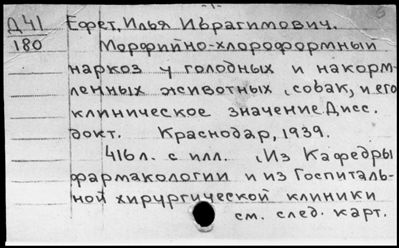 Д41 Ефет, Илья Ибрагимович.
180 Морфийно-хлороформный
наркоз у голодных и накорм-
ленных животных, собак, и его
клиническое значение. Дисс.
докт. Краснодар, 1939.
416 л. с илл. (Из Кафедры
фармакологии и из Госпиталь-
ной хирургической клиники
см. след. карт.